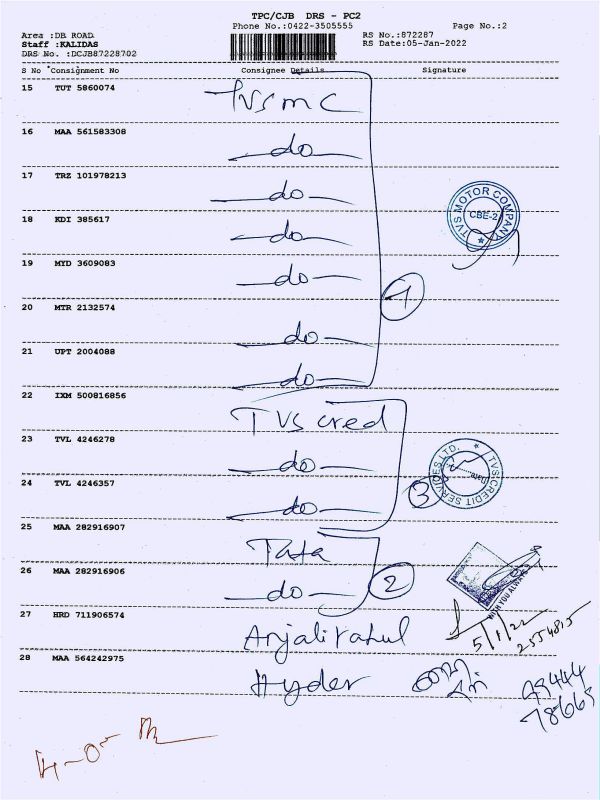 TPC/CJB DRS - PC2
Phone No.:0422-3505555
Page No.:2
Area :DB ROAD
Staff :KALIDAS
DRS No. :DCJB87228702
RS No.:872287
RS Date:05-Jan-2022
S No Consignment No Consignee Details Signature
15 TUT 5860074 TVS m C
16 MAA 561583308 do
17 TRZ 101978213 do
18 KDI 385617 do
TVS MOTOR COMPANY
CBE-2
19 MYD 3609083 do
20 MTR 2132574 do
21 UPT 2004088 do
22 IXM 500816856 TVS cred
23 TVL 4246278 do
24 TVL 4246357 do
TVS CREDIT SERVICES LTD.
Date
3
25 MAA 282916907 Tata
26 MAA 282916906 do
2
WITH YOU ALWAYS
27 HRD 711906574 Anjali rahul
5/1/22
2554815
28 MAA 564242975 Hyder
78665